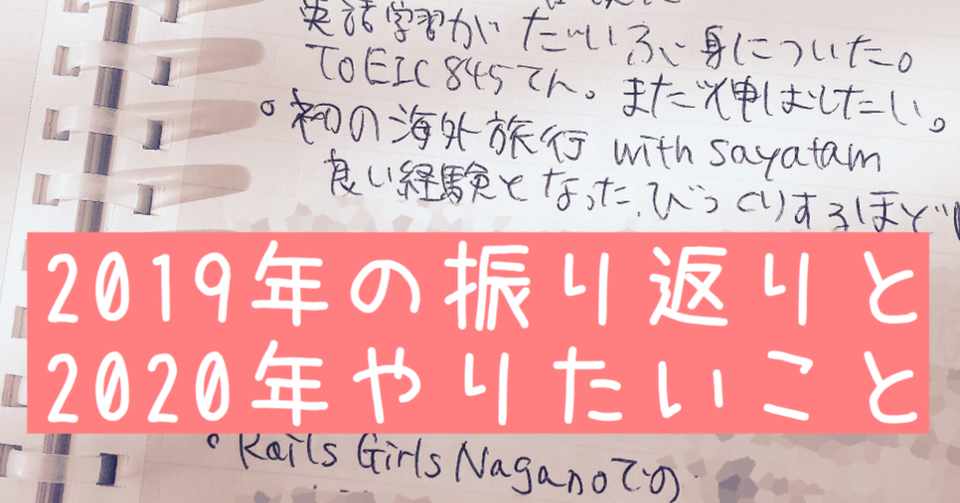 英語学習がだいぶ身についた。
TOEIC 845てん。まだ伸ばしたい。
・初の海外旅行 with sayatam
良い経験となった。びっくりするほど
2019年の振り返りと
2020年やりたいこと
・Rails Girls Naganoでの